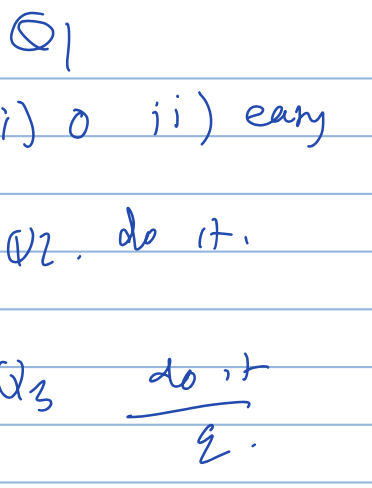 Q1
i) 0 ii) easy
Q2. do it.
Q3 do it